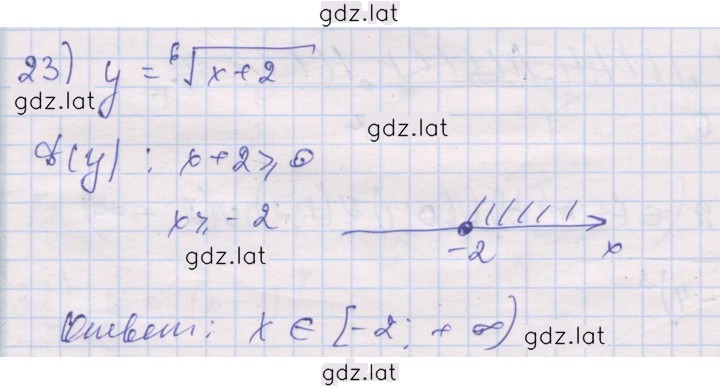 gdz.lat
23) y = ⁶√(x+2)
gdz.lat
gdz.lat
D(y) : x+2 ≥ 0
x ≥ -2
gdz.lat
-2 x
Ответ: x ∈ [-2; +∞)
gdz.lat
gdz.lat